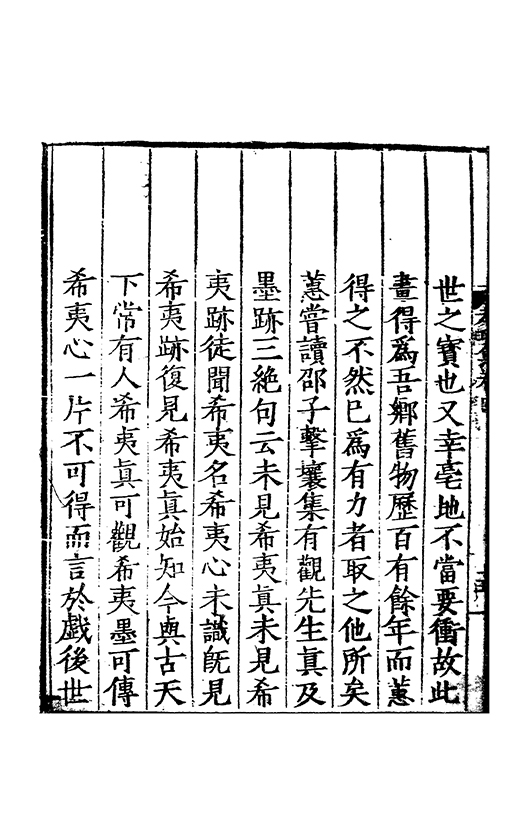 世之寳也又幸亳地不當要衝故此
畫得爲吾鄉舊物歷百有餘年而蕙
得之不然已爲有力者取之他所矣
蕙嘗讀邵子擊壤集有觀先生眞及
墨跡三絶句云未見希夷眞未見希
夷跡徒聞希夷名希夷心未識旣見
希夷跡復見希夷眞始知今與古天
下常有人希夷眞可觀希夷墨可傳
希夷心一片不可得而言於戲後世